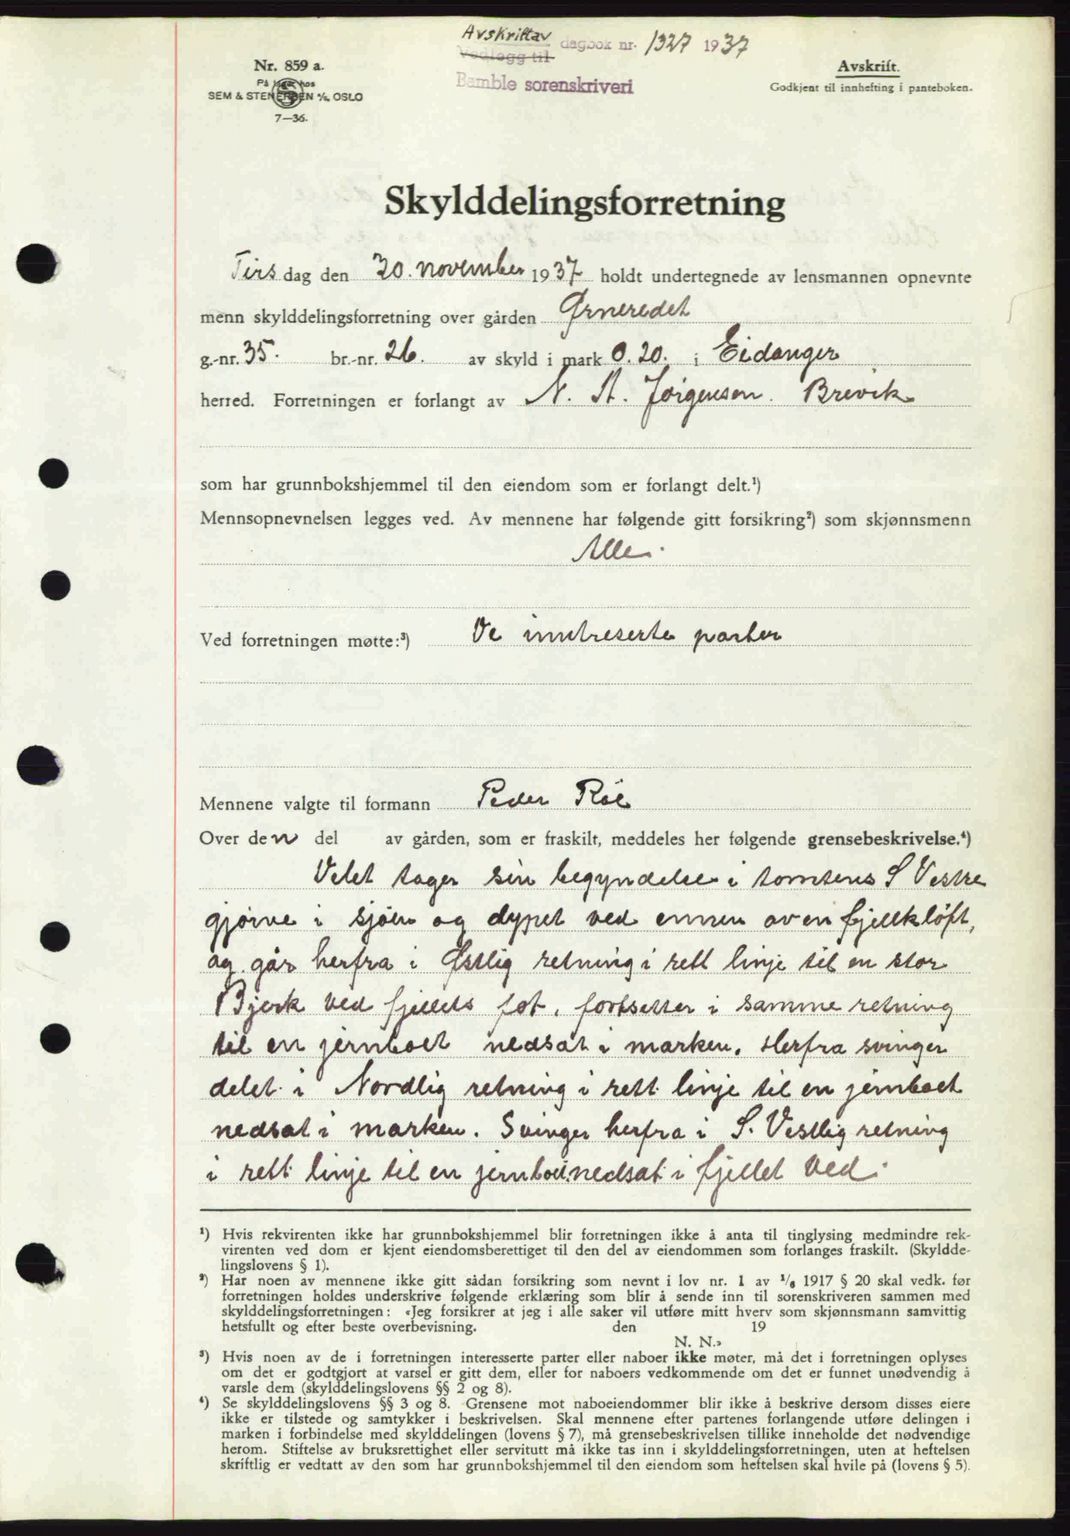 Avskrift av
Vedlegg til dagbok nr. 1327 1937
Bamble sorenskriveri
Nr. 859 a.
På lager hos
SEM & STENERSEN A/S, OSLO
7—36.
Avskrift.
Godkjent til innhefting i panteboken.
Skylddelingsforretning
Tirsdag den 30. november 1937 holdt undertegnede av lensmannen opnevnte
menn skylddelingsforretning over gården Ørneredet
g.-nr. 35. br.-nr. 26. av skyld i mark 0.20. i Eidanger
herred. Forretningen er forlangt av N. A. Jørgensen. Brevik
som har grunnbokshjemmel til den eiendom som er forlangt delt.¹)
Mennsopnevnelsen legges ved. Av mennene har følgende gitt forsikring²) som skjønnsmenn
Alle.
Ved forretningen møtte:³) De inntreserte parter
Mennene valgte til formann Peder Röe
Over den del av gården, som er fraskilt, meddeles her følgende grensebeskrivelse.⁴)
Delet tager sin begyndelse i tomtens S Vestre
gjørne i sjøen og dypet ved ennen av en fjellkløft,
og går herfra i Østlig retning i rett linje til en stor
Bjerk ved fjellets fot, fortsetter i samme retning
til en jernbolt nedsat i marken. Herfra svinger
delet i Nordlig retning i rett linje til en jernbolt
nedsat i marken. Svinger herfra i S. Vestlig retning
i rett linje til en jernbolt nedsat i fjellet ved
¹) Hvis rekvirenten ikke har grunnbokshjemmel blir forretningen ikke å anta til tinglysing medmindre rek-
virenten ved dom er kjent eiendomsberettiget til den del av eiendommen som forlanges fraskilt. (Skyldde-
lingslovens § 1).
²) Har noen av mennene ikke gitt sådan forsikring som nevnt i lov nr. 1 av 1/6 1917 § 20 skal vedk. før
forretningen holdes underskrive følgende erklæring som blir å sende inn til sorenskriveren sammen med
skylddelingsforretningen: «Jeg forsikrer at jeg i alle saker vil utføre mitt hverv som skjønnsmann samvittig
hetsfullt og efter beste overbevisning. den 19
N. N.»
³) Hvis noen av de i forretningen interesserte parter eller naboer ikke møter, må det i forretningen oplyses
om det er godtgjort at varsel er gitt dem, eller for naboers vedkommende om det er funnet unødvendig å
varsle dem (skylddelingslovens §§ 2 og 8).
⁴) Se skylddelingslovens §§ 3 og 8. Grensene mot naboeiendommer blir ikke å beskrive dersom disses eiere
ikke er tilstede og samtykker i beskrivelsen. Skal mennene efter partenes forlangende utføre delingen i
marken i forbindelse med skylddelingen (lovens § 7), må grensebeskrivelsen tillike inneholde det nødvendige
herom. Stiftelse av bruksrettighet eller servitutt må ikke tas inn i skylddelingsforretningen, uten at heftelsen
skriftlig er vedtatt av den som har grunnbokshjemmel til den eiendom som heftelsen skal hvile på (lovens § 5).